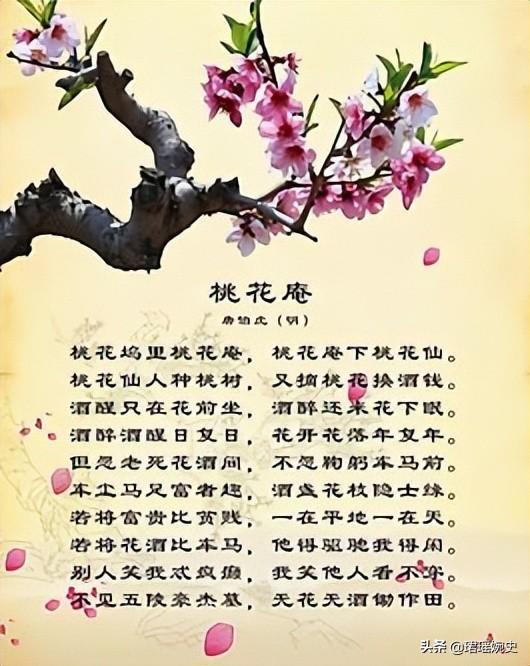 桃花庵
唐伯虎（明）
桃花坞里桃花庵，桃花庵下桃花仙。
桃花仙人种桃树，又摘桃花换酒钱。
酒醒只在花前坐，酒醉还来花下眠。
酒醉酒醒日复日，花开花落年复年。
但愿老死花酒间，不愿鞠躬车马前。
车尘马足富者趣，酒盏花枝隐士缘。
若将富贵比贫贱，一在平地一在天。
若将花酒比车马，他得驱驰我得闲。
别人笑我忒疯癫，我笑他人看不穿。
不见五陵豪杰墓，无花无酒锄作田。
头条 @珺瑶婉史